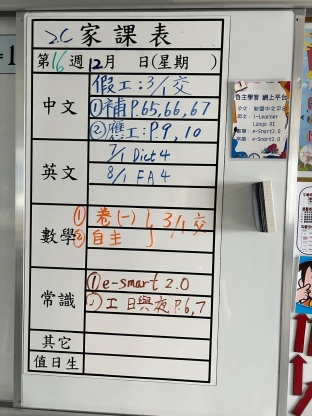 2C 家課表
第16週 12月 日(星期 )
中文
假工:3/1交
①補P.65,66,67
②應工:P9,10
英文
7/1 Dict 4
8/1 FA 4
數學
①卷(一)
②自主
3/1交
常識
①e-smart 2.0
②工 日與夜 P.6,7
其它
值日生
自主學習 網上平台
中文:智愛中文平台
英文:i-Learner
Lango AI
數學:e-Smart2.0
常識:e-Smart2.0